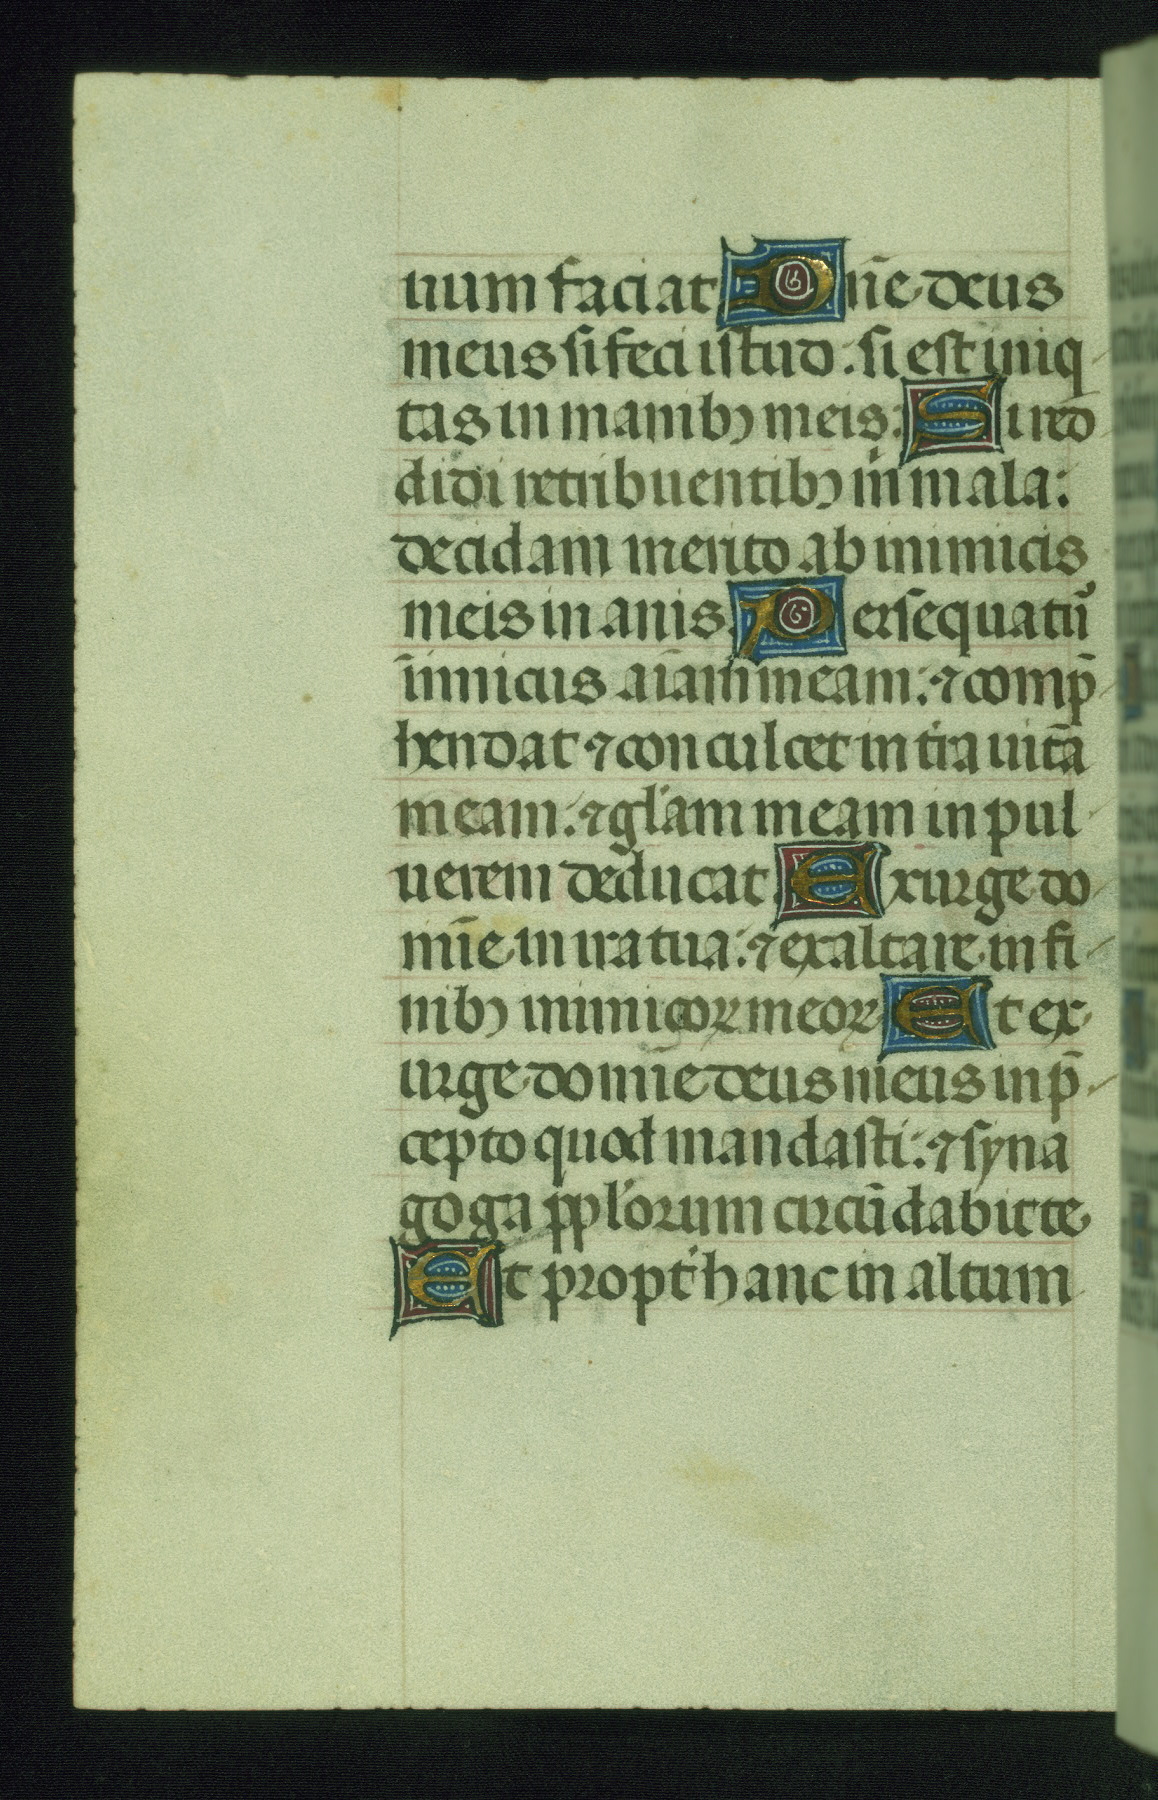 uum faciat Dñe deus
meus si feci istud : si est iniq
tas in manibꝫ meis: Si red
didi retribuentibꝫ m̍ mala:
decidam merito ab inimicis
meis inanis. Persequatur̃
ĩimicus aīam meam: ⁊ comp̄
hendat ⁊ conculcet in t̍ra uitā
meam: ⁊ gl̍am meam in pul
uerem deducat Exurge do
mīe in ira tua: ⁊ exaltare in fi
nibꝫ inimicoꝝ meoꝝ Et ex
urge domīe deus meus in p̄
cepto quod mandasti: ⁊ syna
goga ppl̍orum circūdabit te
Et propt̍ hanc in altum